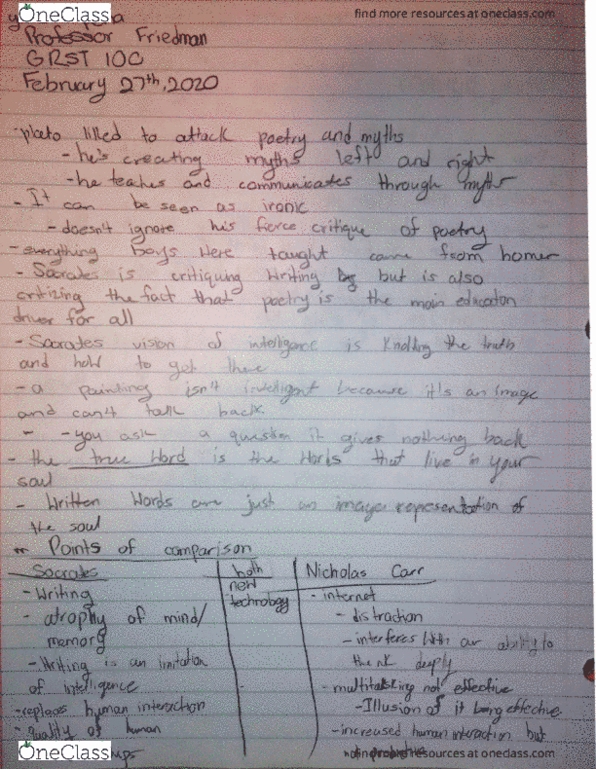 OneClass
find more resources at oneclass.com
Professor Friedman
GRST 10C
February 27th, 2020
- plato liked to attack poetry and myths
- he's creating myths left and right
- he teaches and communicates through myths
- It can be seen as ironic
- doesn't ignore his fierce critique of poetry
- everything boys were taught came from homer
- Socrates is critiquing Writing but is also
critizing the fact that poetry is the main education
driver for all
- Socrates vision of intelligence is knowing the truth
and how to get there
- a painting isn't intelligent because it's an image
and can't talk back.
- - you ask a question it gives nothing back
- the true word is the words that live in your
soul
- Written Words are just an image representation of
the soul
Points of comparison
Socrates | both | Nicholas Carr
- Writing | new technology | - internet
- atrophy of mind/ | - distraction
memory | - interferes with our ability to
- Writing is an imitation | think deeply
of intelligence | - multitasking not effective
- replaces human interaction | - Illusion of it being effective
- quality of human | - increased human interaction but
OneClass
find more resources at oneclass.com